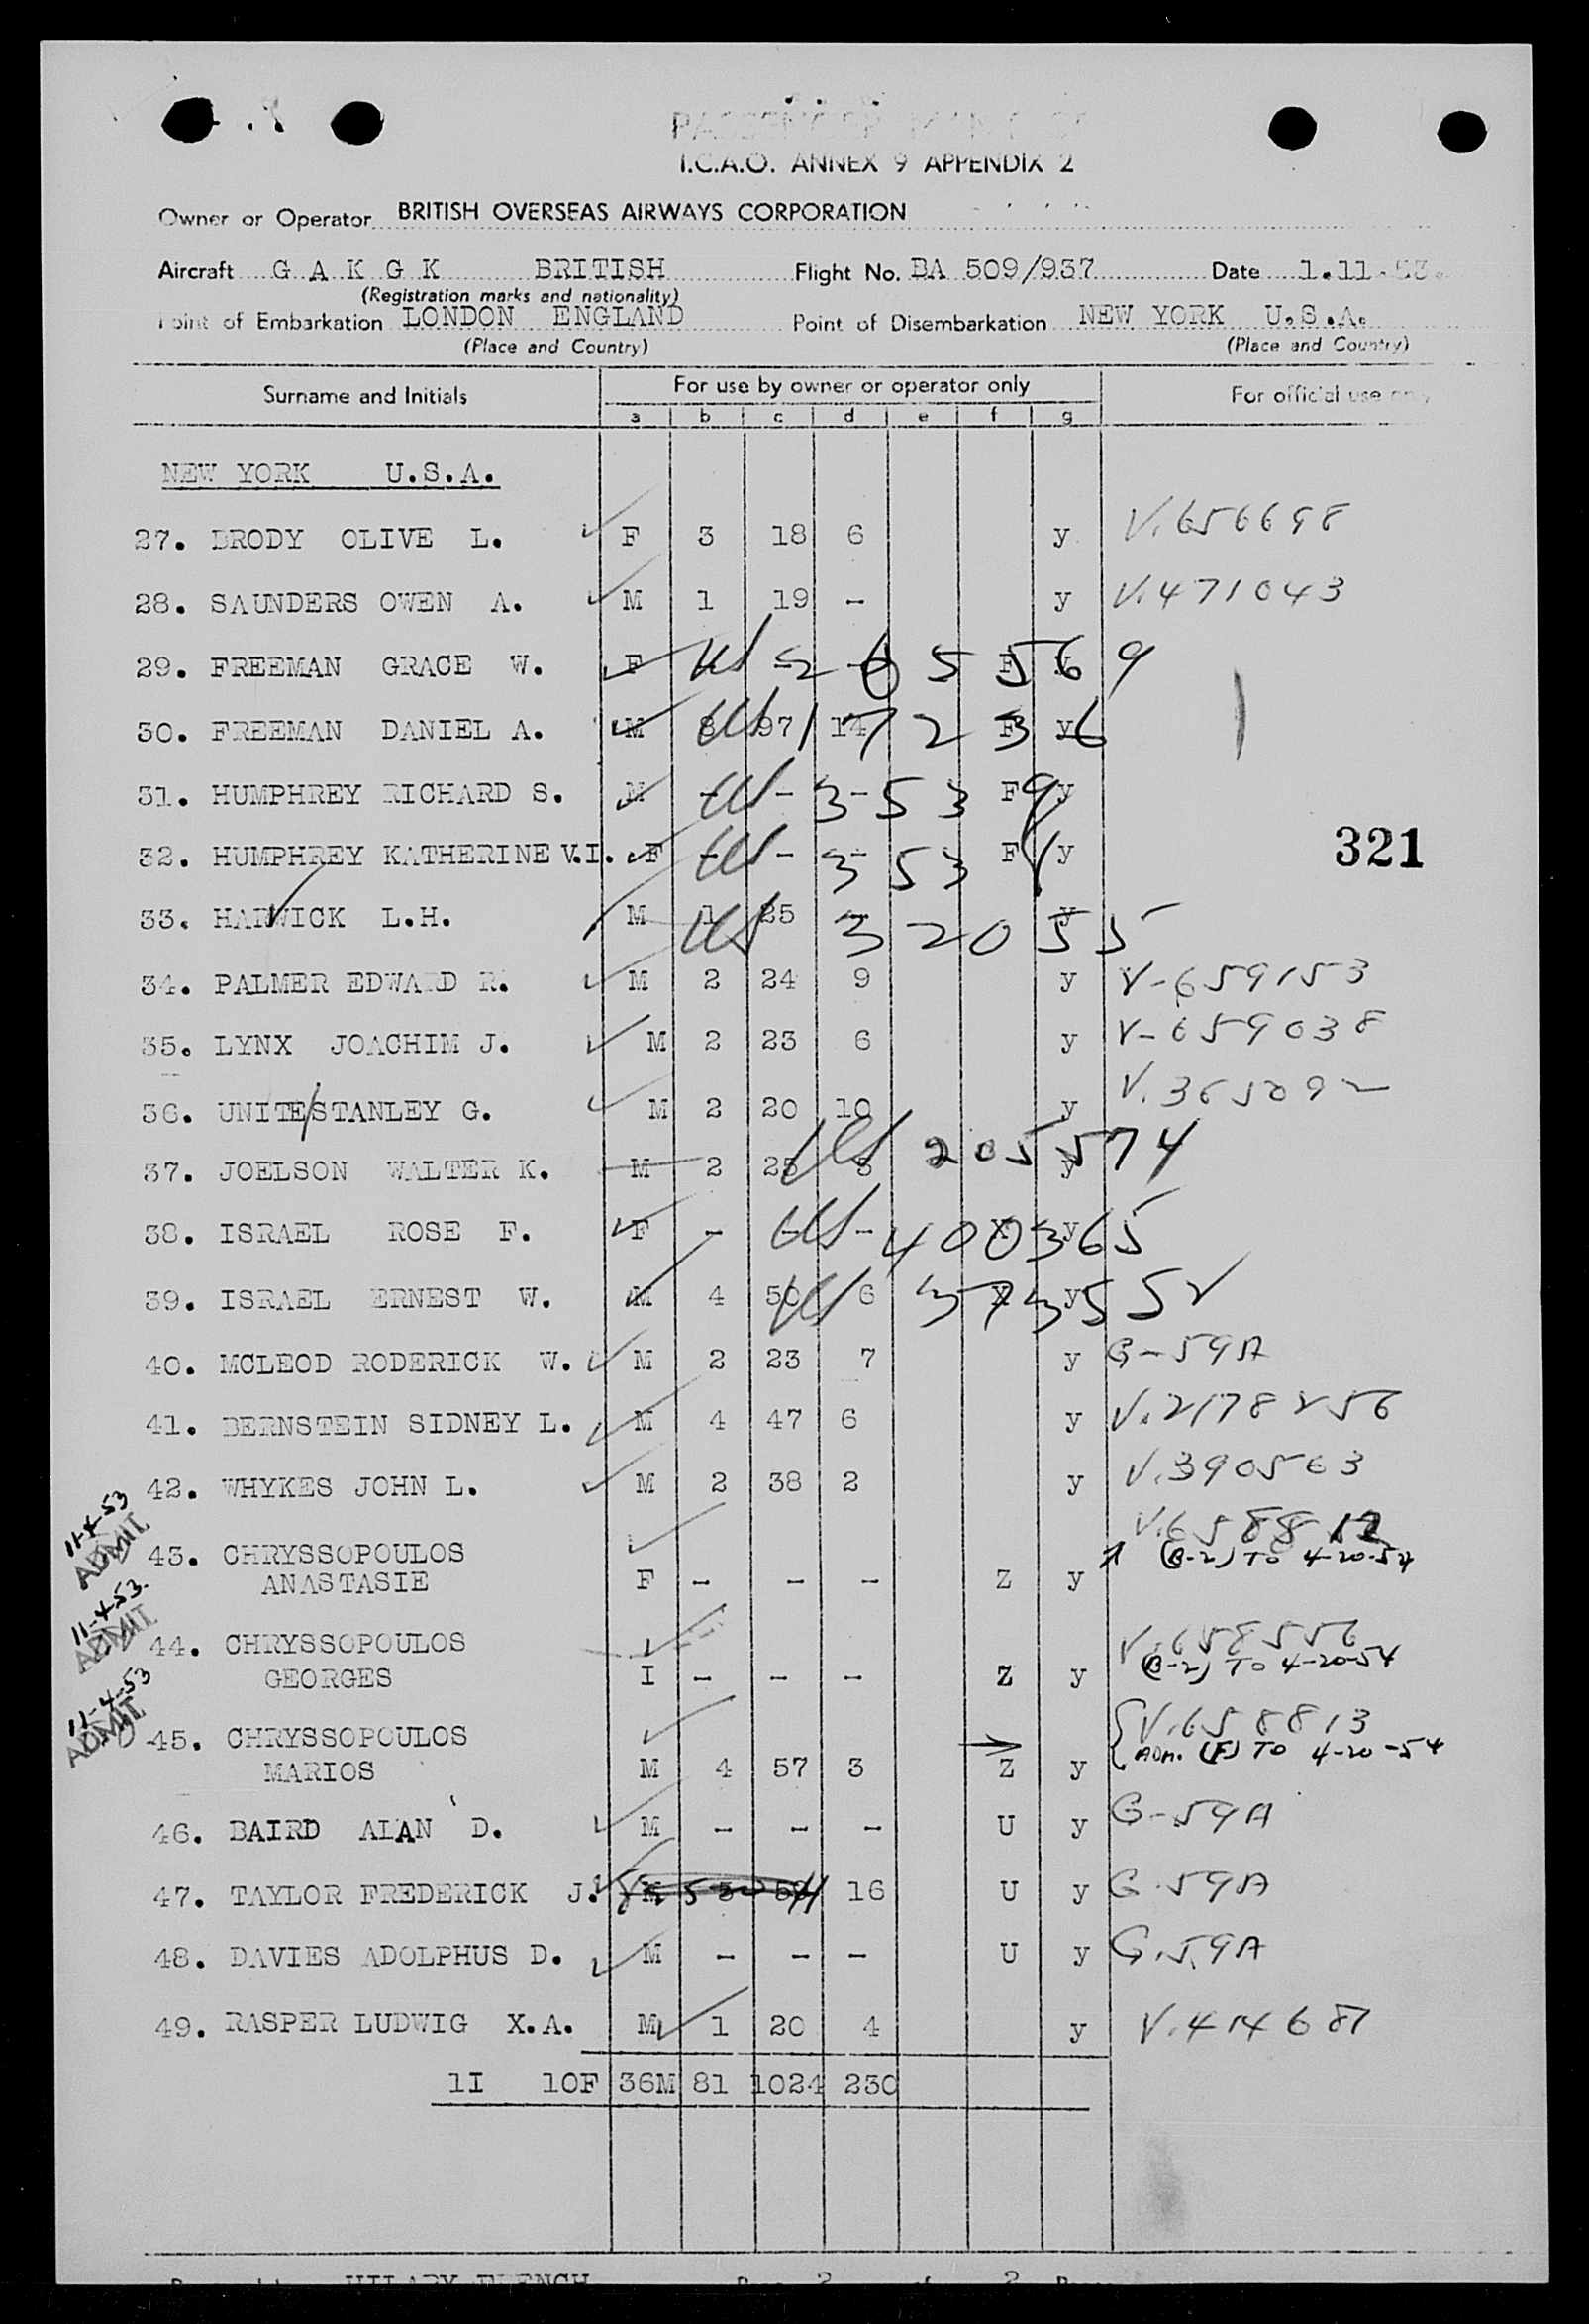 PASSENGER MANIFEST
I.C.A.O. ANNEX 9 APPENDIX 2
Owner or Operator BRITISH OVERSEAS AIRWAYS CORPORATION
Aircraft G A K G K BRITISH Flight No. BA 509/937 Date 1.11.53.
(Registration marks and nationality)
Point of Embarkation LONDON ENGLAND Point of Disembarkation NEW YORK U.S.A.
(Place and Country) (Place and Country)
Surname and Initials For use by owner or operator only For official use only
a b c d e f g
NEW YORK U.S.A.
27. BRODY OLIVE L. F 3 18 6 y V.656698
28. SAUNDERS OWEN A. M 1 19 - y V.471043
29. FREEMAN GRACE W. F US 205569
30. FREEMAN DANIEL A. M 8 97 14 F y US 17236
31. HUMPHREY RICHARD S. M - - - F y US 3539
32. HUMPHREY KATHERINE V.I. F - - - F y US 353
33. HARWICK L.H. M 1 25 - y US 32055
34. PALMER EDWARD R. M 2 24 9 y V-659153
35. LYNX JOACHIM J. M 2 23 6 y V-659038
36. UNITE/STANLEY G. M 2 20 10 y V.365092
37. JOELSON WALTER K. M 2 25 8 y US 205574
38. ISRAEL ROSE F. F - - - y US 400365
39. ISRAEL ERNEST W. M 4 50 6 y US
40. MCLEOD RODERICK W. M 2 23 7 y G-59A
41. BERNSTEIN SIDNEY L. M 4 47 6 y V.2178256
42. WHYKES JOHN L. M 2 38 2 y V.390563
11-4-53
ADMIT
43. CHRYSSOPOULOS V.658812
ANASTASIE F - - - Z y (B-2) TO 4-20-54
11-4-53.
ADMIT
44. CHRYSSOPOULOS V.658556
GEORGES I - - - Z y (B-2) TO 4-20-54
11-4-53
ADMIT
45. CHRYSSOPOULOS V.658813
MARIOS M 4 57 3 Z y ADM. (F) TO 4-20-54
46. BAIRD ALAN D. M - - - U y G-59A
47. TAYLOR FREDERICK J. 16 U y G.59A
48. DAVIES ADOLPHUS D. M - - - U y G.59A
49. RASPER LUDWIG X.A. M 1 20 4 y V.414687
1I 10F 36M 81 1024 230
321
HILARY FRENCH 2 2